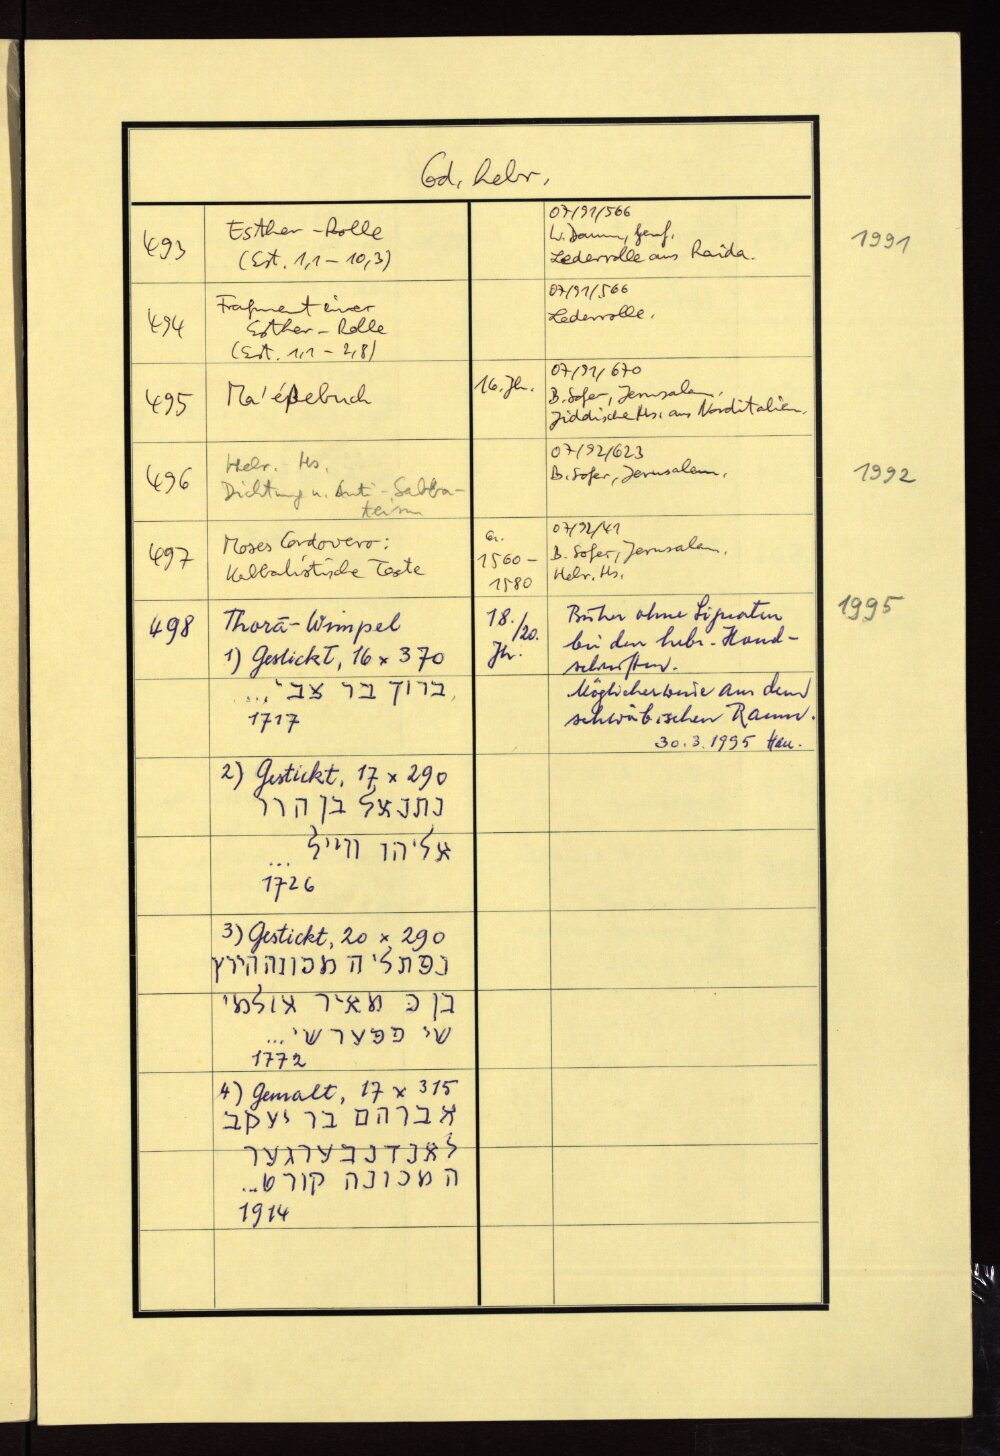 Cod. hebr.
493
Esther-Rolle
(Est. 1,1 – 10,3)
07/91/566
Lederrolle aus Raida.
1991
494
Fragment einer
Esther-Rolle
(Est. 1,1 – 2,8)
07/91/566
Lederrolle.
495
Ma'ёßebuch
16. Jh.
07/91/670
B. Sofer, Jerusalem.
Jiddische Hs. aus Norditalien.
496
Hebr. Hs.
Dichtung u. Anti-Sabba-
07/92/623
B. Sofer, Jerusalem.
1992
497
Moses Cordovero:
Kabbalistische Texte
1560 –
1580
07/92/41
B. Sofer, Jerusalem.
Hebr. Hs.
498
Thorā-Wimpel
18./20.
Jh.
Bisher ohne Signatur
bei den hebr. Hand-
schriften.
Möglicherweise aus dem
schwäbischen Raum.
30.3.1995
1995
1) Gestickt, 16 x 370
ברוך בר צבי...
1717
2) Gestickt, 17 x 290
נתנאל בן הרר
אליהו ווייל ...
1726
3) Gestickt, 20 x 290
נפתלי ה מכונה הירץ
בן כ מאיר אולמי
שי פפערשי...
1772
4) Gemalt, 17 x 315
אברהם בר יעקב
לאנדנבערגער
ה מכונה קורט...
1914